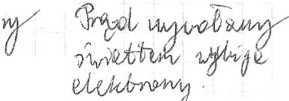 ny Prąd wywołany
światłem wybija
elektrony.